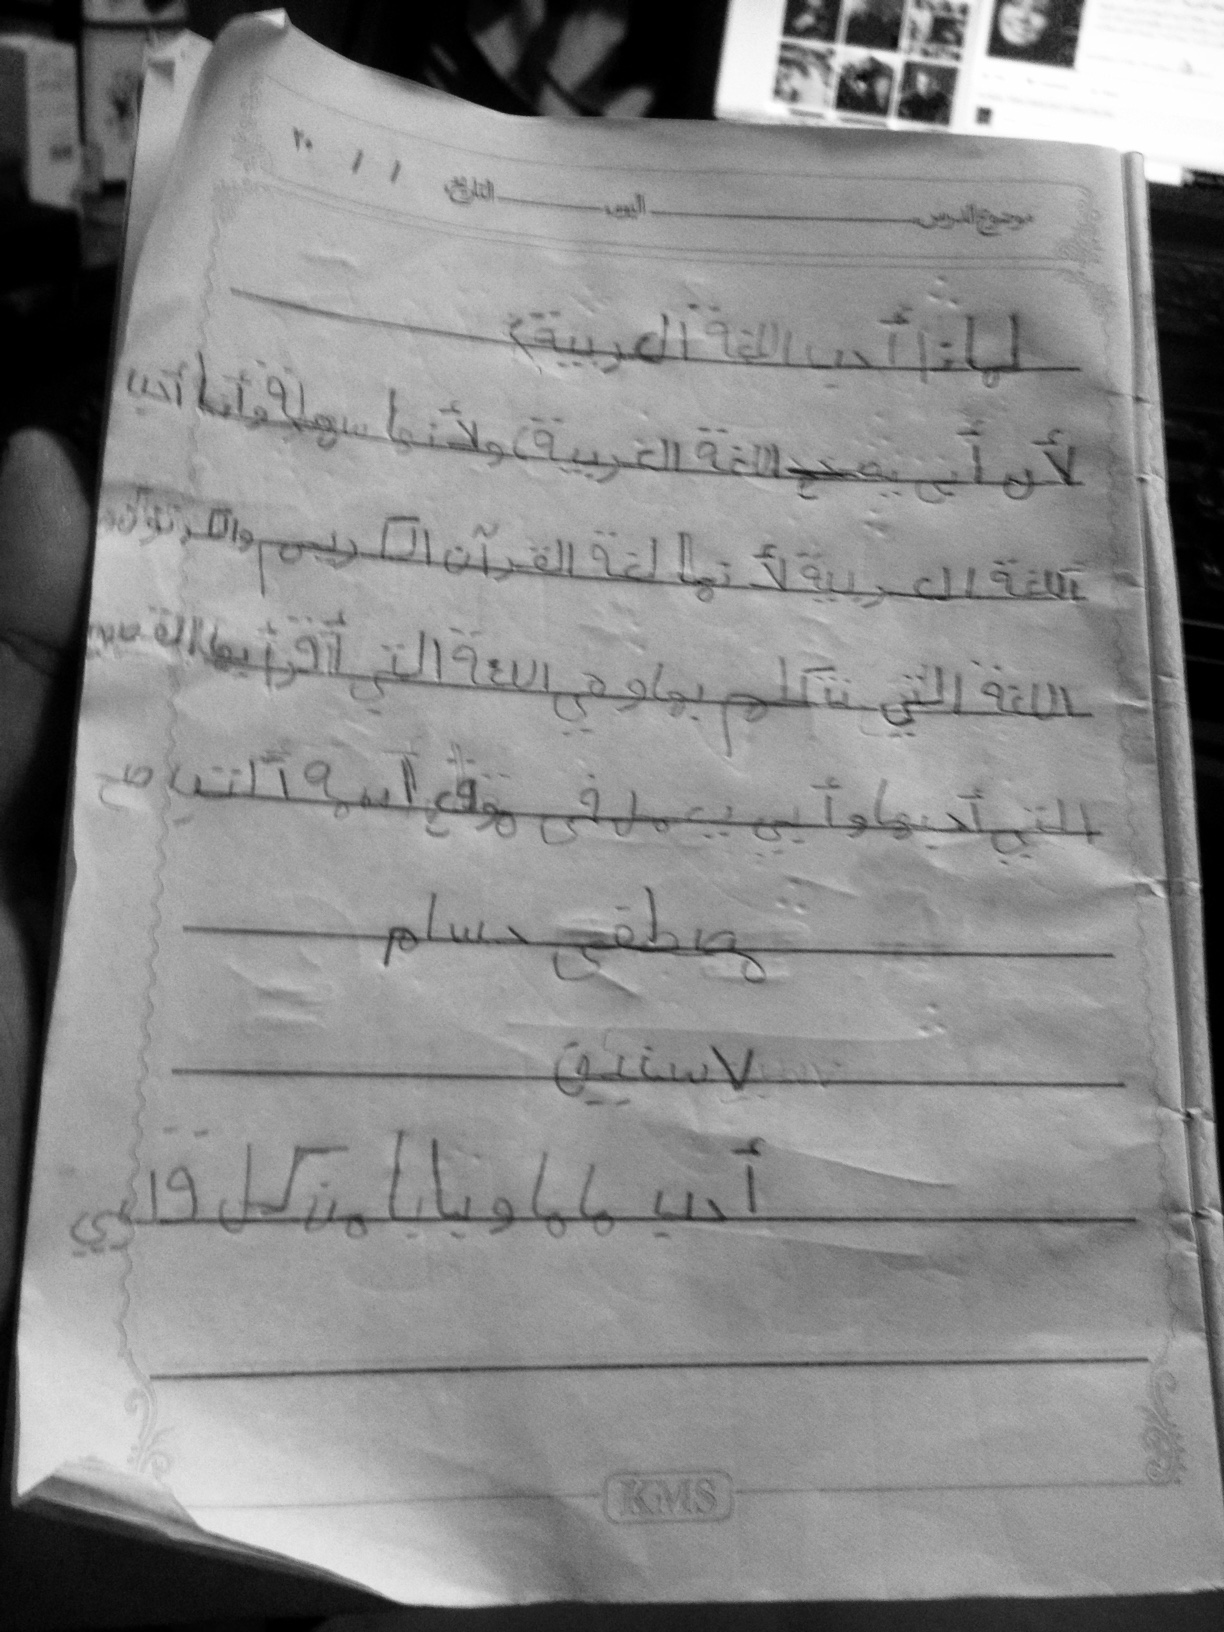 موضوع الدرس اليوم التاريخ / / ٢٠
لماذا أحب اللغة العربية؟
لأن أبي يصحح اللغة العربية ولأنها سهلة وأنا أحب
اللغة العربية لأنها لغة القرآن الكريم
اللغة التي نتكلم بها وهي اللغة التي أقرأ بها
التي أحبها وأبي يعمل في موقع اسمه
مصطفى حسام
لاستيق
أحب ماما وبابا من كل قلبي
KMS